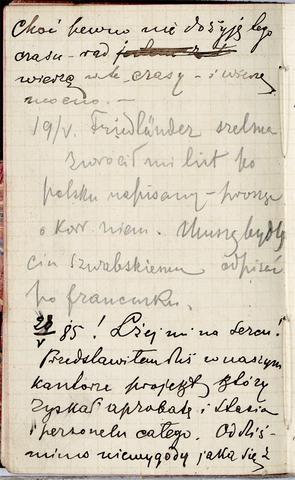 Choć pewno nie dożyję tego
czasu - rad
wierzę w te czasy - i wierzę
mocno. -
19/V. Friedländer szelma
zwrócił mi list po
polsku napisany - proszę
o kor. niem. Muszę bydlę
ciu szwabskiemu odpisać
po francusku.
28/V 85! Lżej mi na sercu!
Przedstawiłem dziś w naszym
kantorze projekt który
zyskał aprobatę i Stasia
i personelu całego. Od dziś -
mimo niewygody jaka się z